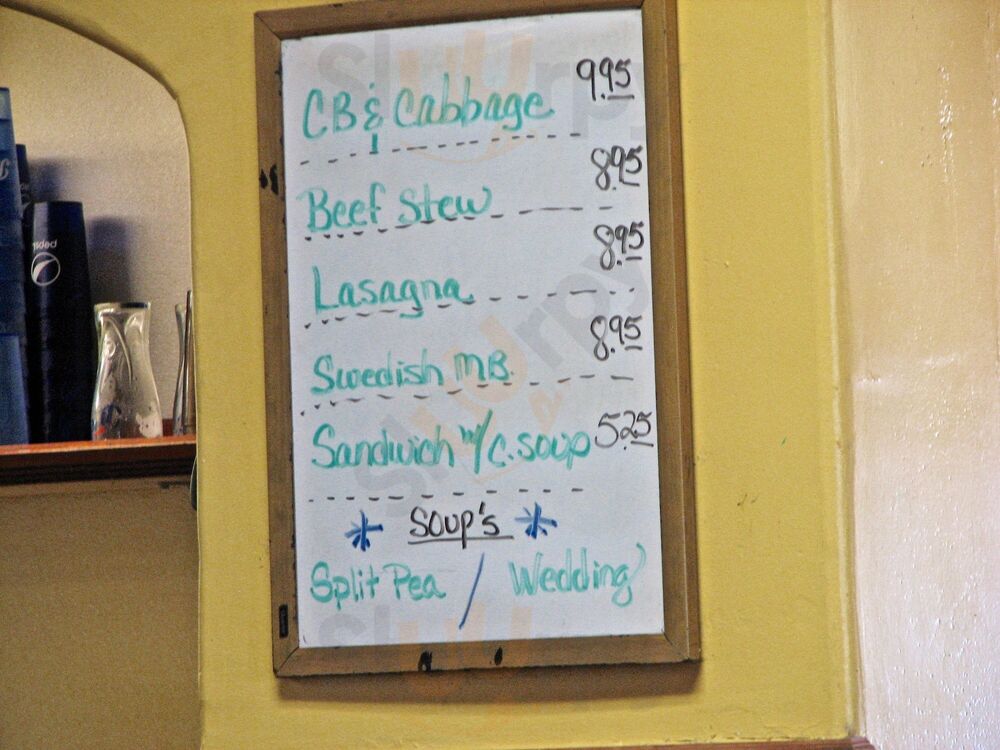 CB & Cabbage 9.95
Beef Stew 8.95
Lasagna 8.95
Swedish MB. 8.95
Sandwich w/c. soup 5.25
* Soup's *
Split Pea / Wedding
pepsi
Slurpy
Slurpy
Slurpy